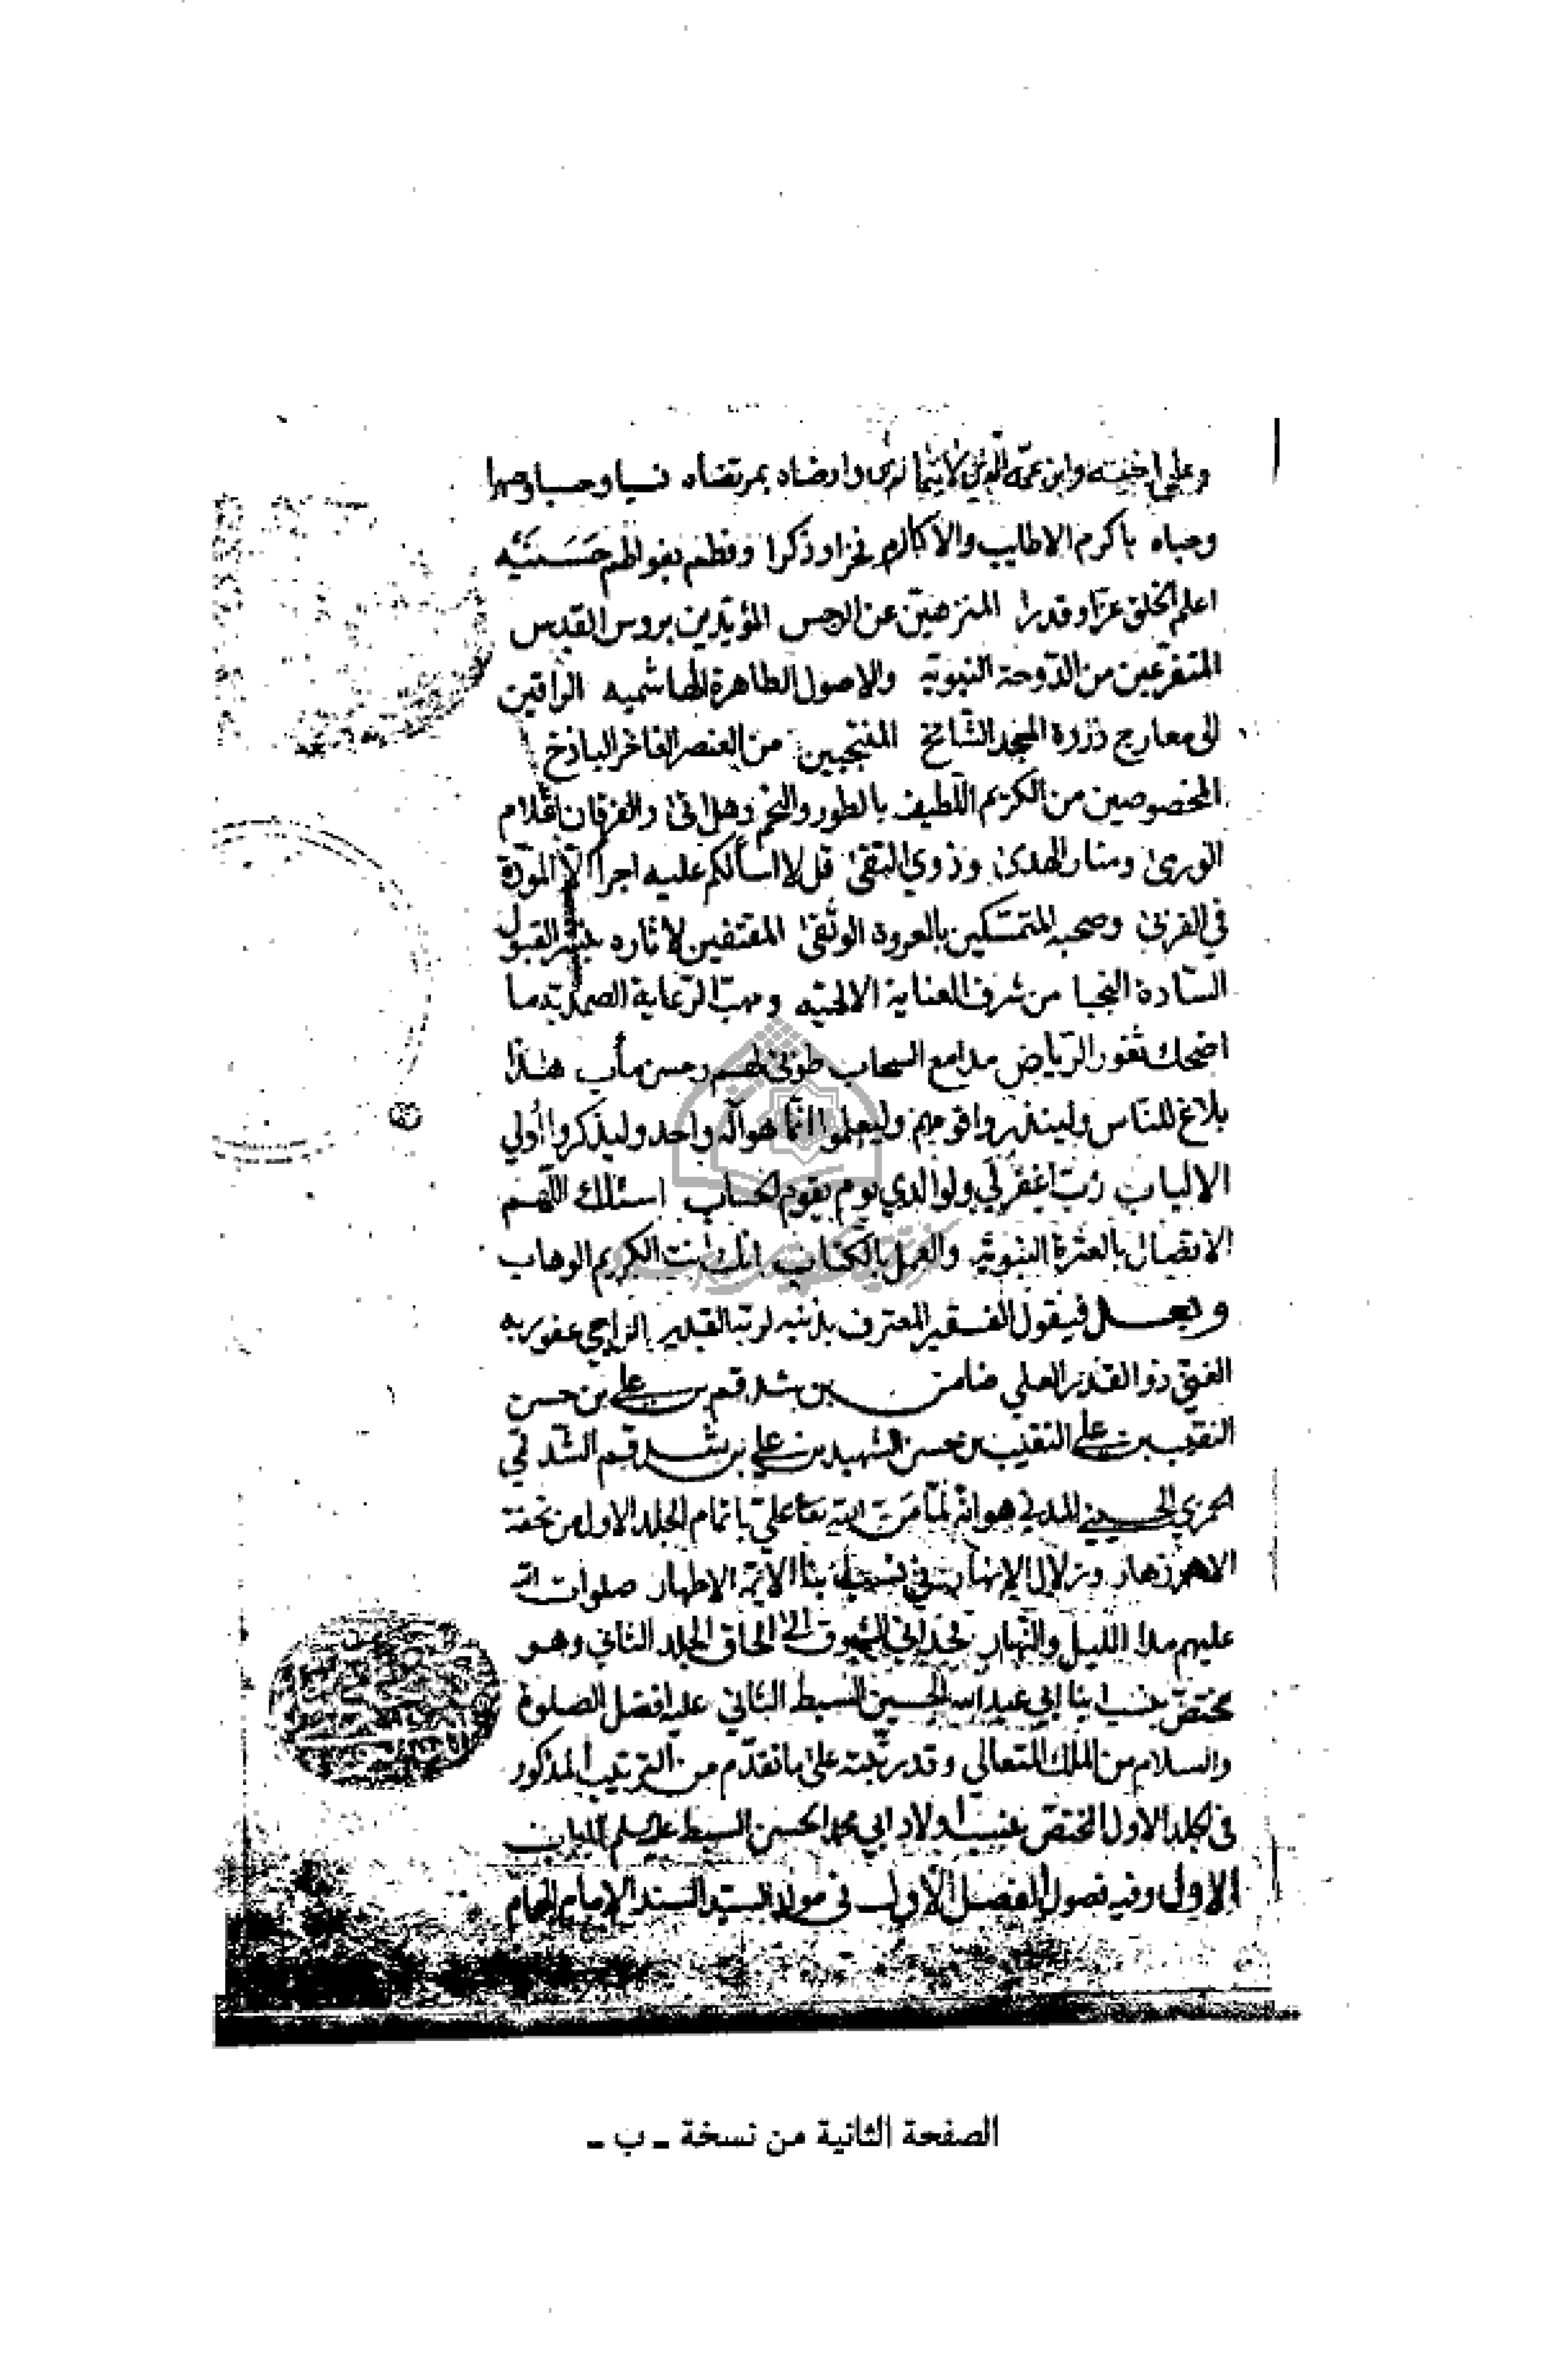 وعلى اخيه وابن عمه الذي وارضاه بمرتضاه نسبا وحسبا وصهرا
وحباه باكرم الاطايب والاكارم فخرا وذكرا وفطم بفواطم
اعلم الخلق عزا وقدرا المنزهين عن الرجس المؤيدين بروس القدس
المتفرعين من الدوحة النبوية والاصول الطاهرة الهاشميه الراقين
الى معارج ذروة المجد الشامخ المنتجبين من العنصر الفاخر الباذخ
المخصوصين من الكريم اللطيف بالطور والنجم وهل اتى والفرقان اعلام
الورى ومنار الهدى وذوي التقى قل لا اسألكم عليه اجرا الا المودة
في القربى وصحبه المتمسكين بالعروة الوثقى المقتفين لاثاره القبول
السادة النجبا من شرف العناية الالهيه ومهب الرعاية الصمدية ما
اضحك ثغور الرياض مدامع السحاب طوبى لهم وحسن مأب هذا
بلاغ للناس ولينذروا قومهم وليعلموا انما هو اله واحد وليذكر اولي
الالباب رب اغفر لي ولوالدي يوم يقوم الحساب اسئلك اللهم
الاتصال بالعترة النبوية والعمل بالكتاب انك انت الكريم الوهاب
وبعد فيقول الفقير المعترف بذنبه لربه القدير الراجي عفو ربه
الغني ذو القدير العلي ضامن بن شدقم بن علي بن حسن
النقيب بن علي النقيب بن حسن الشهيد بن علي بن شدقم الشدقمي
الحمزي الحسيني المدني هو انه لما من الله تعا علي باتمام الجلد الاول من تحفة
الازهار وزلال الانهار في نسب ابنا الائمة الاطهار صلوات الله
عليهم مدا الليل والنهار فحداني الشوق الى الحاق الجلد الثاني وهو
مختص بنسب ابنا ابي عبد الله الحسين السبط الثاني عليه افضل الصلوة
والسلام من الملك المتعالي وقد رتبته على ما تقدم من الترتيب المذكور
في الجلد الاول المختص بنسب اولاد ابي محمد الحسن السبط عليه السلم الباب
الاول وفيه فصول الفصل الاول في مولد السيد السند الامام الهمام
الصفحة الثانية من نسخة ـ ب ـ